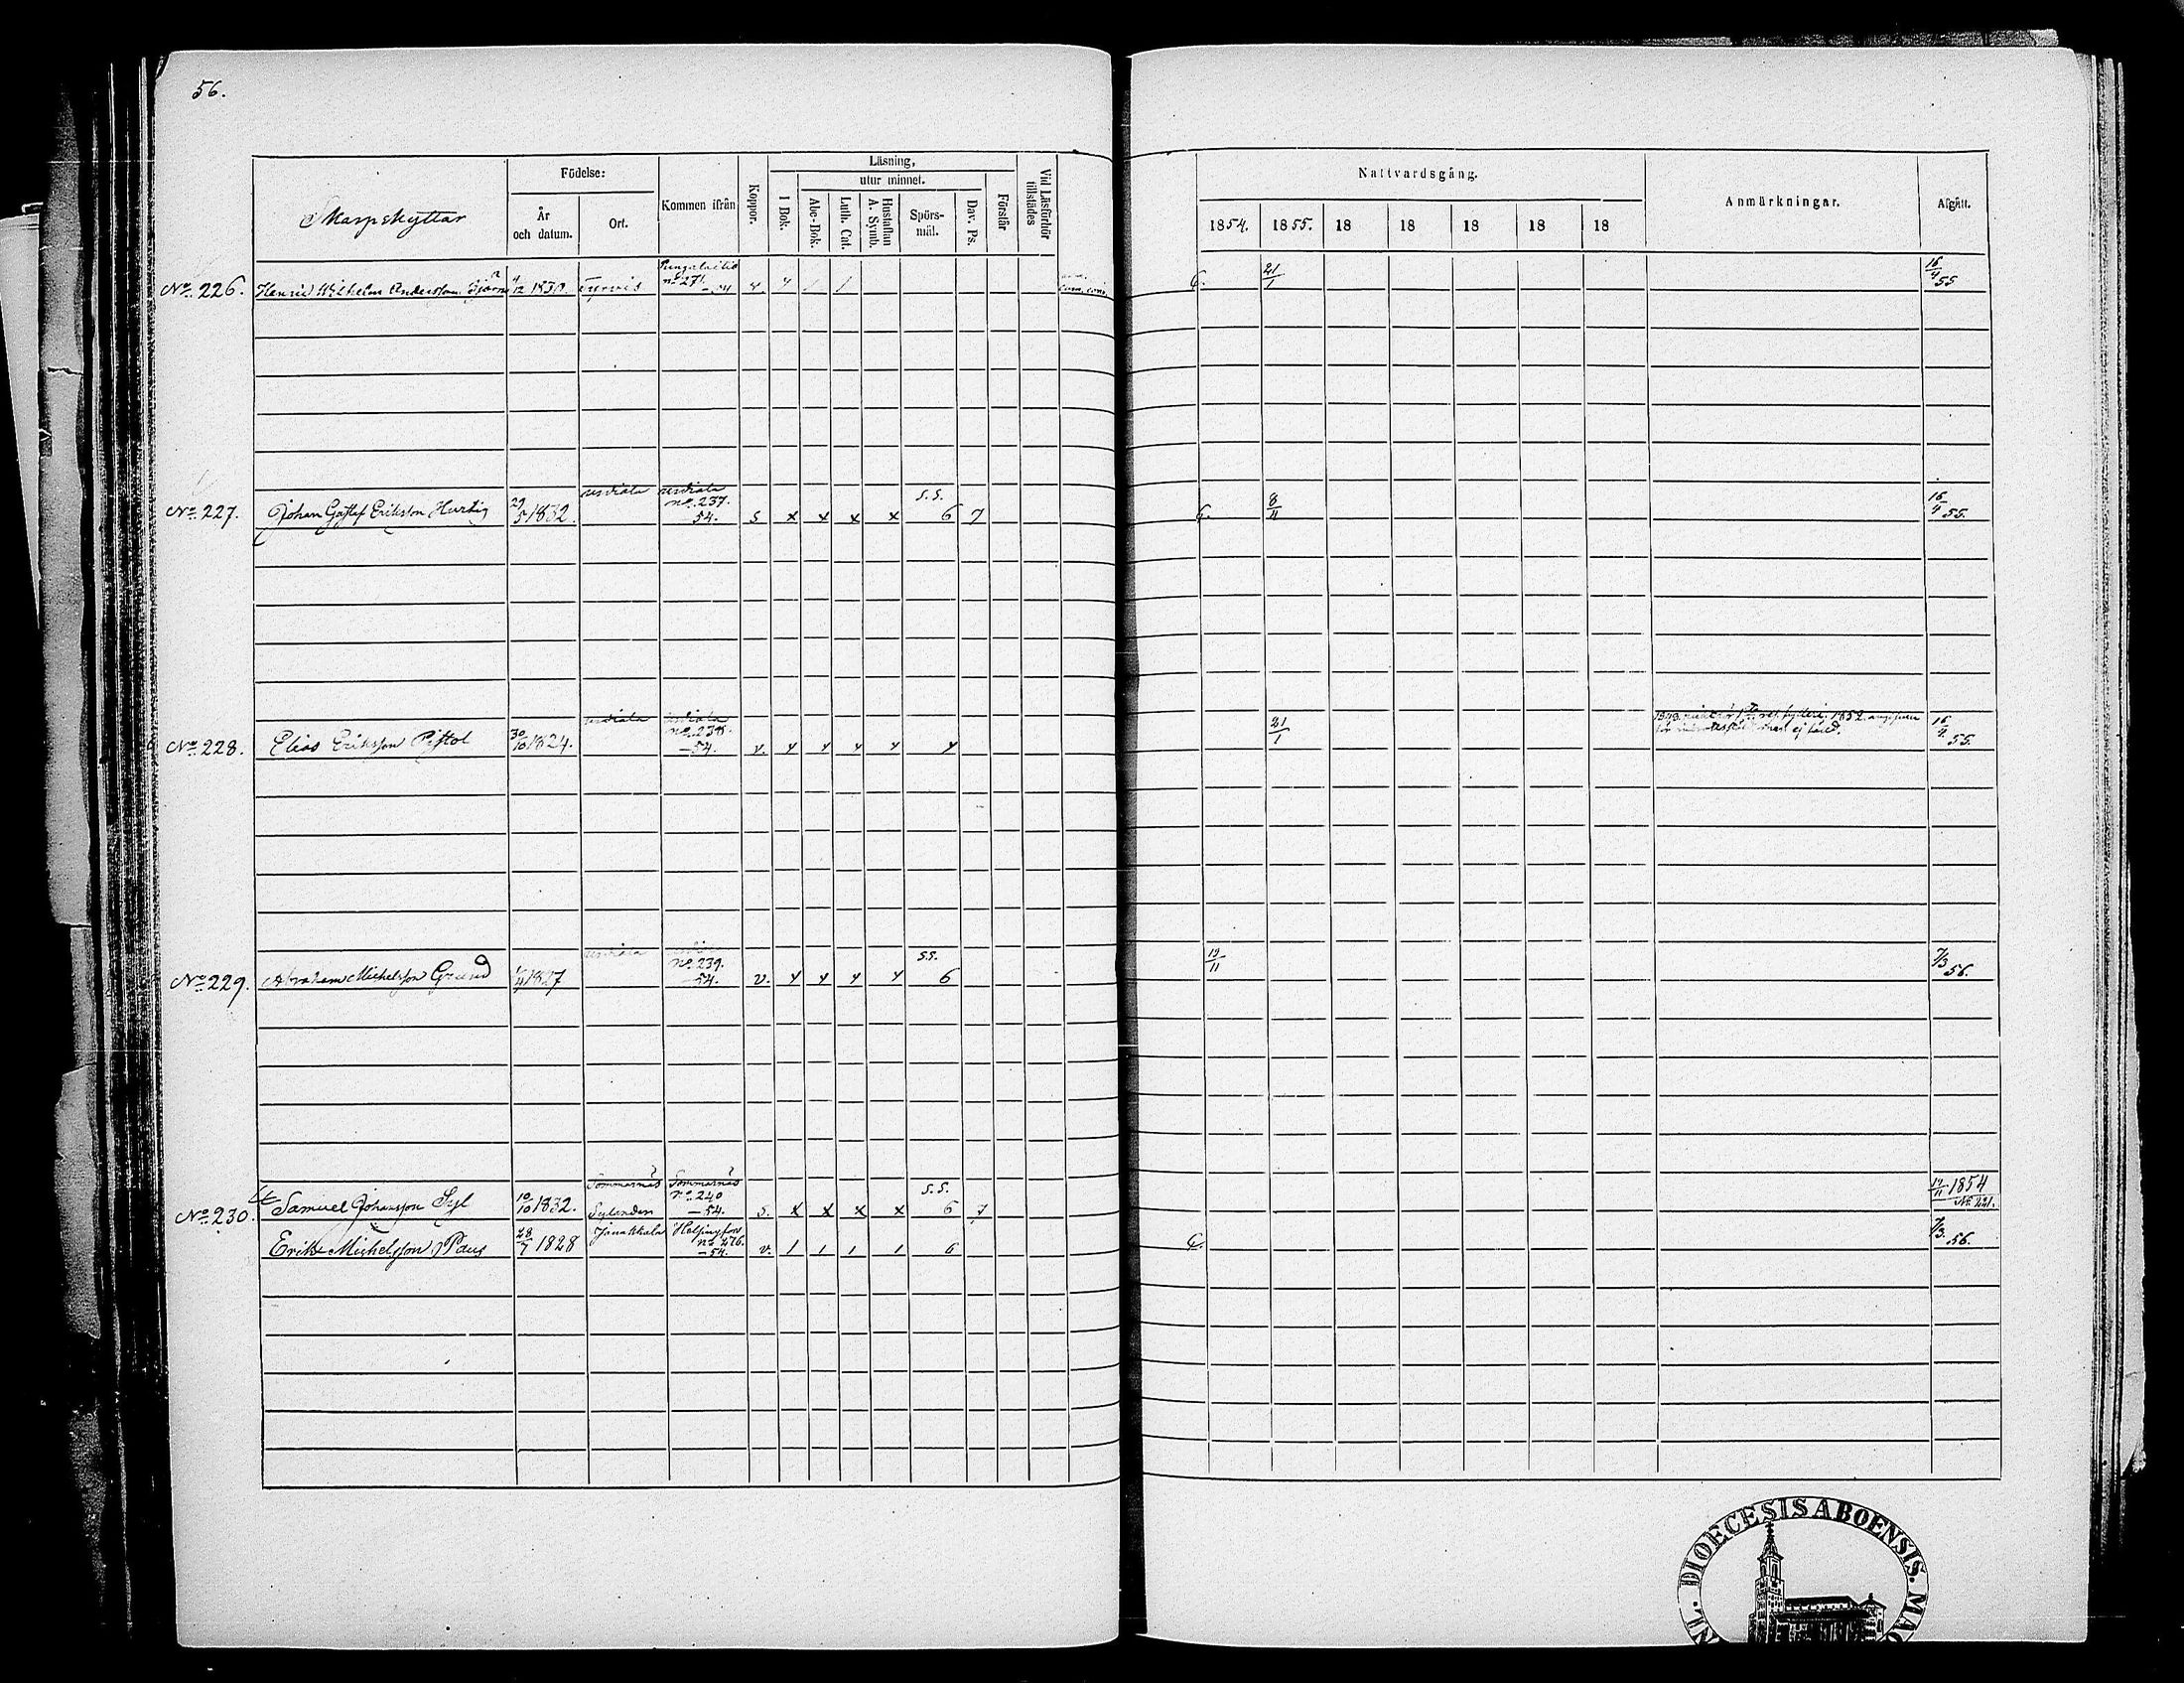 56.
Skarpskyttar
Födelse:
År och datum.
Ort.
Kommen ifrån
Koppor.
Läsning,
I Bok.
utur minnet.
Abc-Bok.
Luth. Cat.
Hustaflan A. Symb.
Spörs-mål.
Dav. Ps.
Förstår
Vid Läsförhör tillstädes
Nattvardsgång.
1854. 1855. 18 18 18 18 18
Anmärkningar.
Afgått.
No. 226. Henric Wilhelm Andersson 4/12 1830. Tyrvis
no 271. -54
21/1
16/4 55
No. 227. Johan Gustaf Eriksson Hurtig 29/5 1832.
no. 237. 54. s x x x x s.s. 6 7
8/11
16/4 55.
No. 228. Elias Eriksson Pistol 30/10 1824.
no. 238. -54. v. y y y y y
21/1
16/4 55.
No. 229. Abraham Michelsson Grand 1827
No. 239. -54. v. y y y y s.s. 6
19/11
7/3 56.
No. 230. Samuel Johansson Syl 10/10 1832. Sommarnäs Sylanden
Sommarnäs no. 240 -54. s. x x x x s.s. 6 7
19/11 1854 No. 221.
Erik Michelsson Paus 28/7 1828 Janakkala Helsingfors no 276. -54. v. 1 1 1 1 6
7/3. 56.
DIOECESIS ABOENSIS.